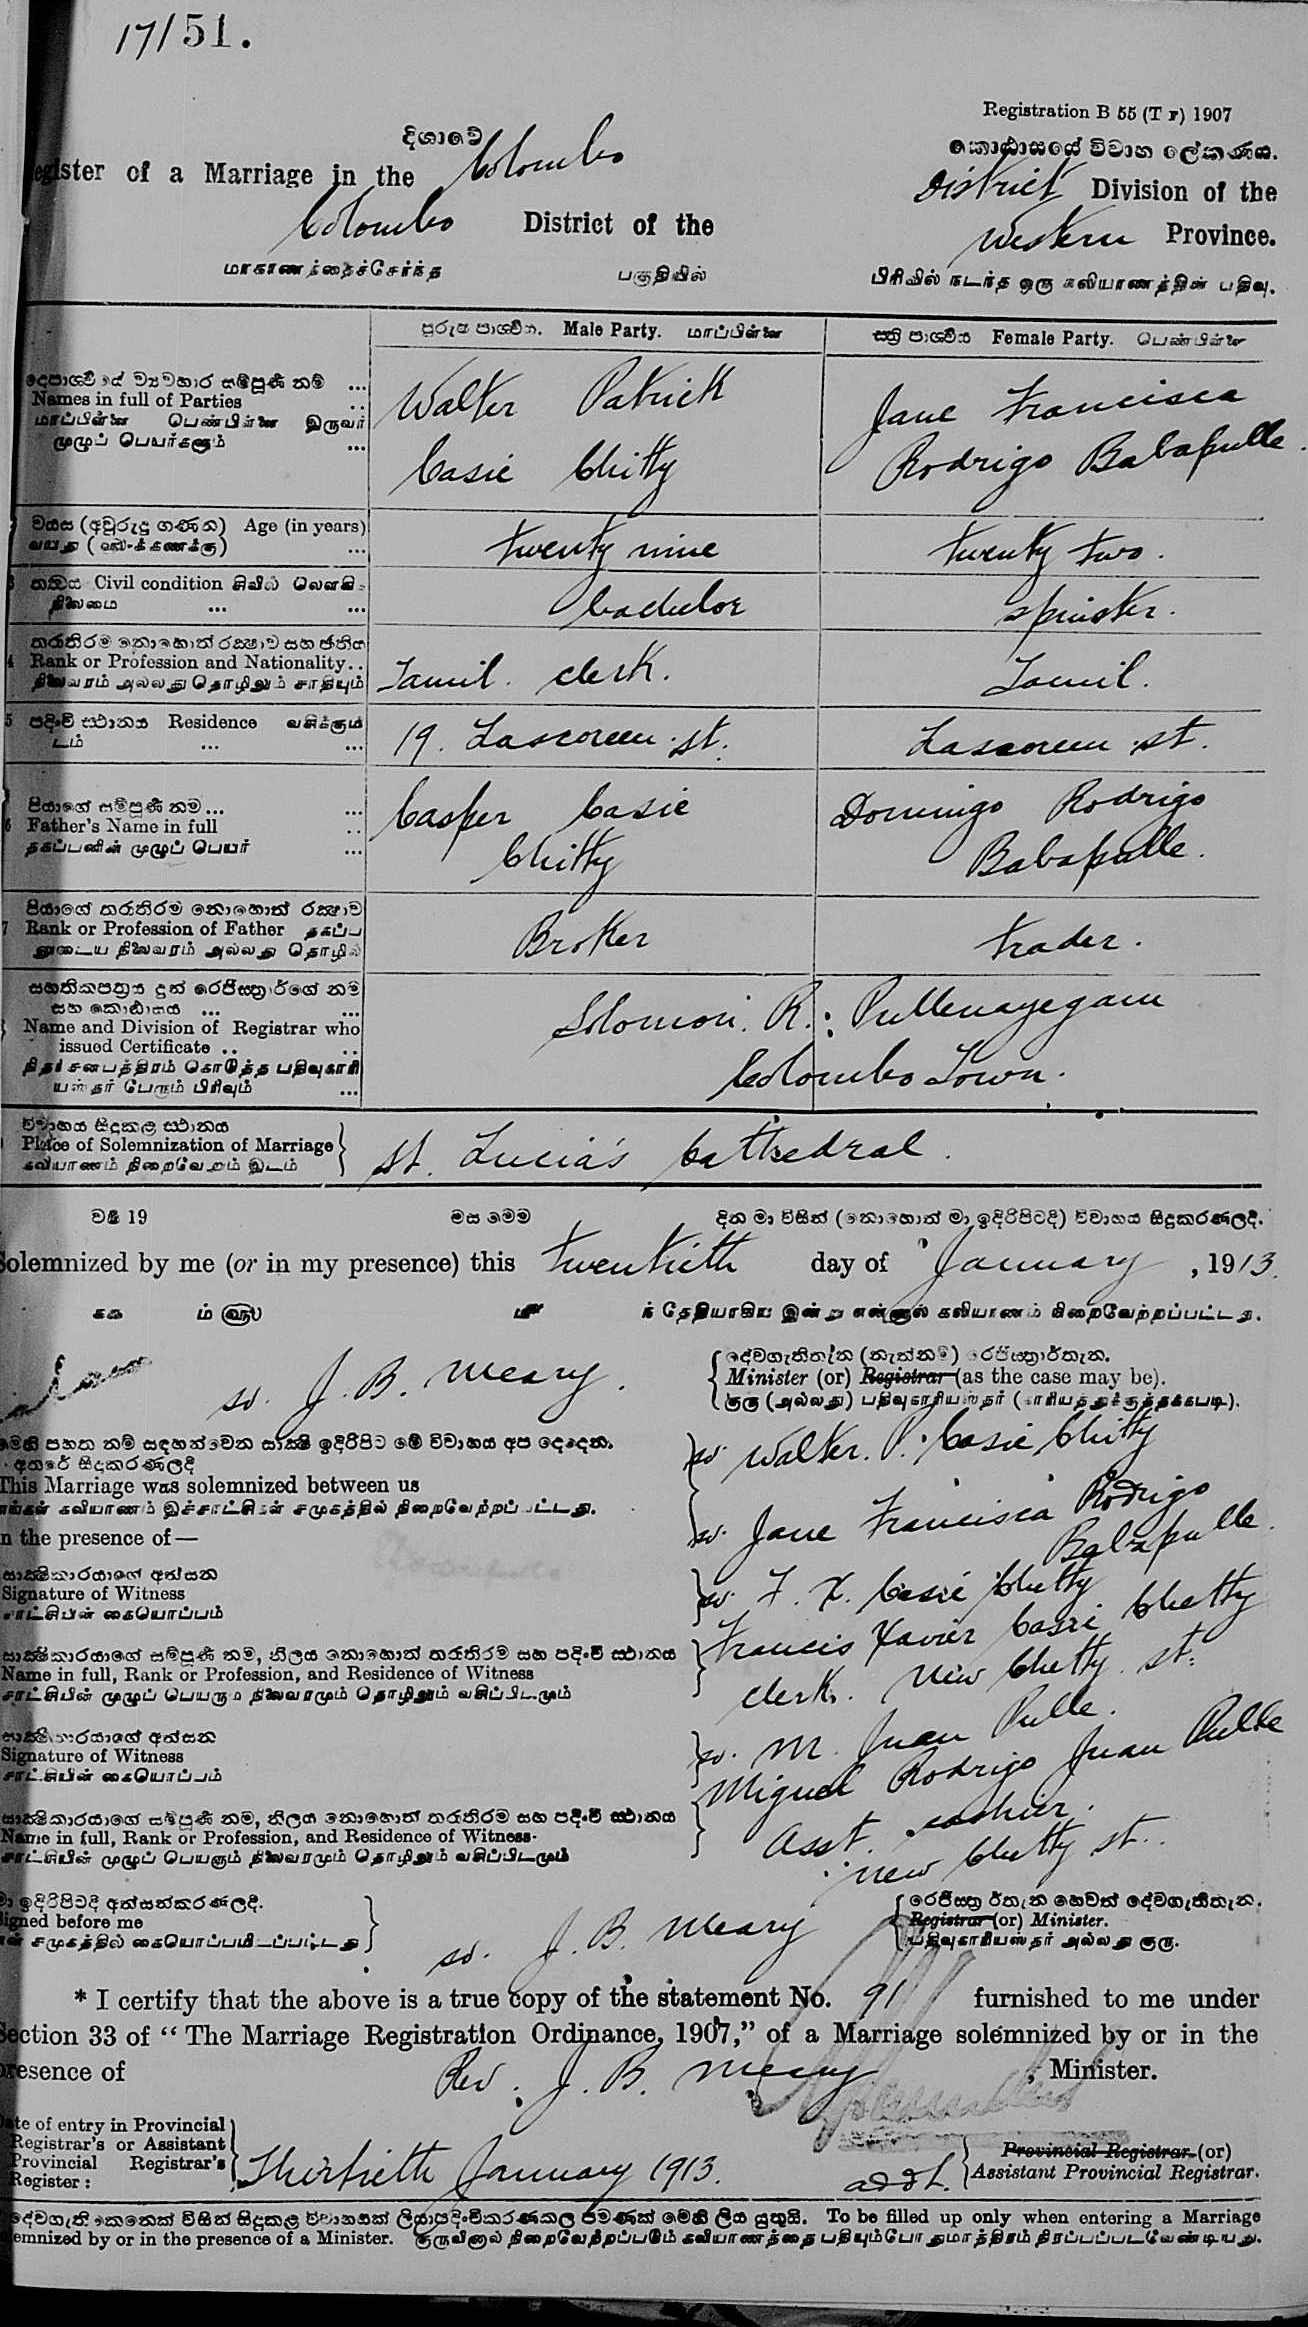 17/51.
Registration B 55 (T F) 1907
දිශාවේ
කොඨාසයේ විවාහ ලේකණය.
Register of a Marriage in the Colombo District Division of the
Colombo District of the Western Province.
மாகாணத்தைச்சேர்ந்த பகுதியில் பிரிவில் நடந்த ஒரு கலியாணத்தின் பதிவு.
පුරුෂ පාශ්වීය. Male Party. மாப்பிள்ளை
ස්ත්‍රී පාශ්වීය Female Party. பெண்பிள்ளை
Names in full of Parties
மாப்பிள்ளை பெண்பிள்ளை இருவர்
முழுப் பெயர்களும்
Walter Patrick
Casie Chitty
Jane Francisca
Rodrigo Babapulle
වයස (අවුරුදු ගණන) Age (in years)
twenty nine
twenty two.
Civil condition
bachelor
spinster.
Rank or Profession and Nationality..
Tamil. Clerk.
Tamil.
පදිංචි ස්ථානය Residence
19. Lascoreen St.
Lascoreen St.
පියාගේ සම්පූර්ණ නම...
6 Father's Name in full
தகப்பனின் முழுப் பெயர்
Casper Casie
Chitty
Domingo Rodrigo
Babapulle.
පියාගේ තරාතිරම නොහොත් රක්ෂාව
7 Rank or Profession of Father
Broker
Trader.
Name and Division of Registrar who
issued Certificate ..
Solomon. R. Pullenayegam
Colombo Town.
විවාහය සිදුකළ ස්ථානය
Place of Solemnization of Marriage
கலியாணம் நிறைவேறும் இடம்
St. Lucia's Cathedral.
වර්ෂ 19 මස මෙම දින මා විසින් (නොහොත් මා ඉදිරිපිටදි) විවාහය සිදුකරණලදි.
Solemnized by me (or in my presence) this twentieth day of January, 1913.
sd. J. B. Meary.
Minister (or) Registrar (as the case may be).
මෙහි පහත නම් සඳහන්වෙන සාක්ෂි ඉදිරිපිට මේ විවාහය අප දෙදෙනා
අතරේ සිදුකරණලදි
This Marriage was solemnized between us
in the presence of—
sd. Walter. P. Casie Chitty
sd. Jane Francisca Rodrigo
Babapulle.
සාක්ෂිකාරයාගේ අත්සන
Signature of Witness
சாட்சியின் கையொப்பம்
sd. F. X. Casie Chetty
සාක්ෂිකාරයාගේ සම්පූර්ණ නම, නිලය නොහොත් තරාතිරම සහ පදිංචි ස්ථානය
Name in full, Rank or Profession, and Residence of Witness
சாட்சியின் முழுப் பெயரும் நிலைவரமும் தொழிலும் வசிப்பிடமும்
Francis Xavier Casie Chetty
Clerk. New Chetty St.
සාක්ෂිකාරයාගේ අත්සන
Signature of Witness
சாட்சியின் கையொப்பம்
sd. M. Juan Pulle.
සාක්ෂිකාරයාගේ සම්පූර්ණ නම, නිලය නොහොත් තරාතිරම සහ පදිංචි ස්ථානය
Name in full, Rank or Profession, and Residence of Witness.
சாட்சியின் முழுப் பெயரும் நிலைவரமும் தொழிலும் வசிப்பிடமும்
Miguel Rodrigo Juan Pulle
Asst. cashier.
New Chetty St.
මා ඉදිරිපිටදි අත්සන්කරණලදි.
Signed before me
என் சமுகத்தில் கையொப்பமிடப்பட்டது
sd. J. B. Meary
Registrar (or) Minister.
பதிவுகாரியஸ்தர் அல்லது குரு.
* I certify that the above is a true copy of the statement No. 91 furnished to me under
Section 33 of “The Marriage Registration Ordinance, 1907,” of a Marriage solemnized by or in the
presence of Rev. J. B. Meary, Minister.
Date of entry in Provincial
Registrar's or Assistant
Provincial Registrar's
Register:
Thirtieth January 1913.
addl.
Provincial Registrar (or)
Assistant Provincial Registrar.
To be filled up only when entering a Marriage
solemnized by or in the presence of a Minister. குருவினால் நிறைவேற்றப்படும் கலியாணத்தை பதியும்போதுமாத்திரம் நிரப்பப்படவேண்டியது.